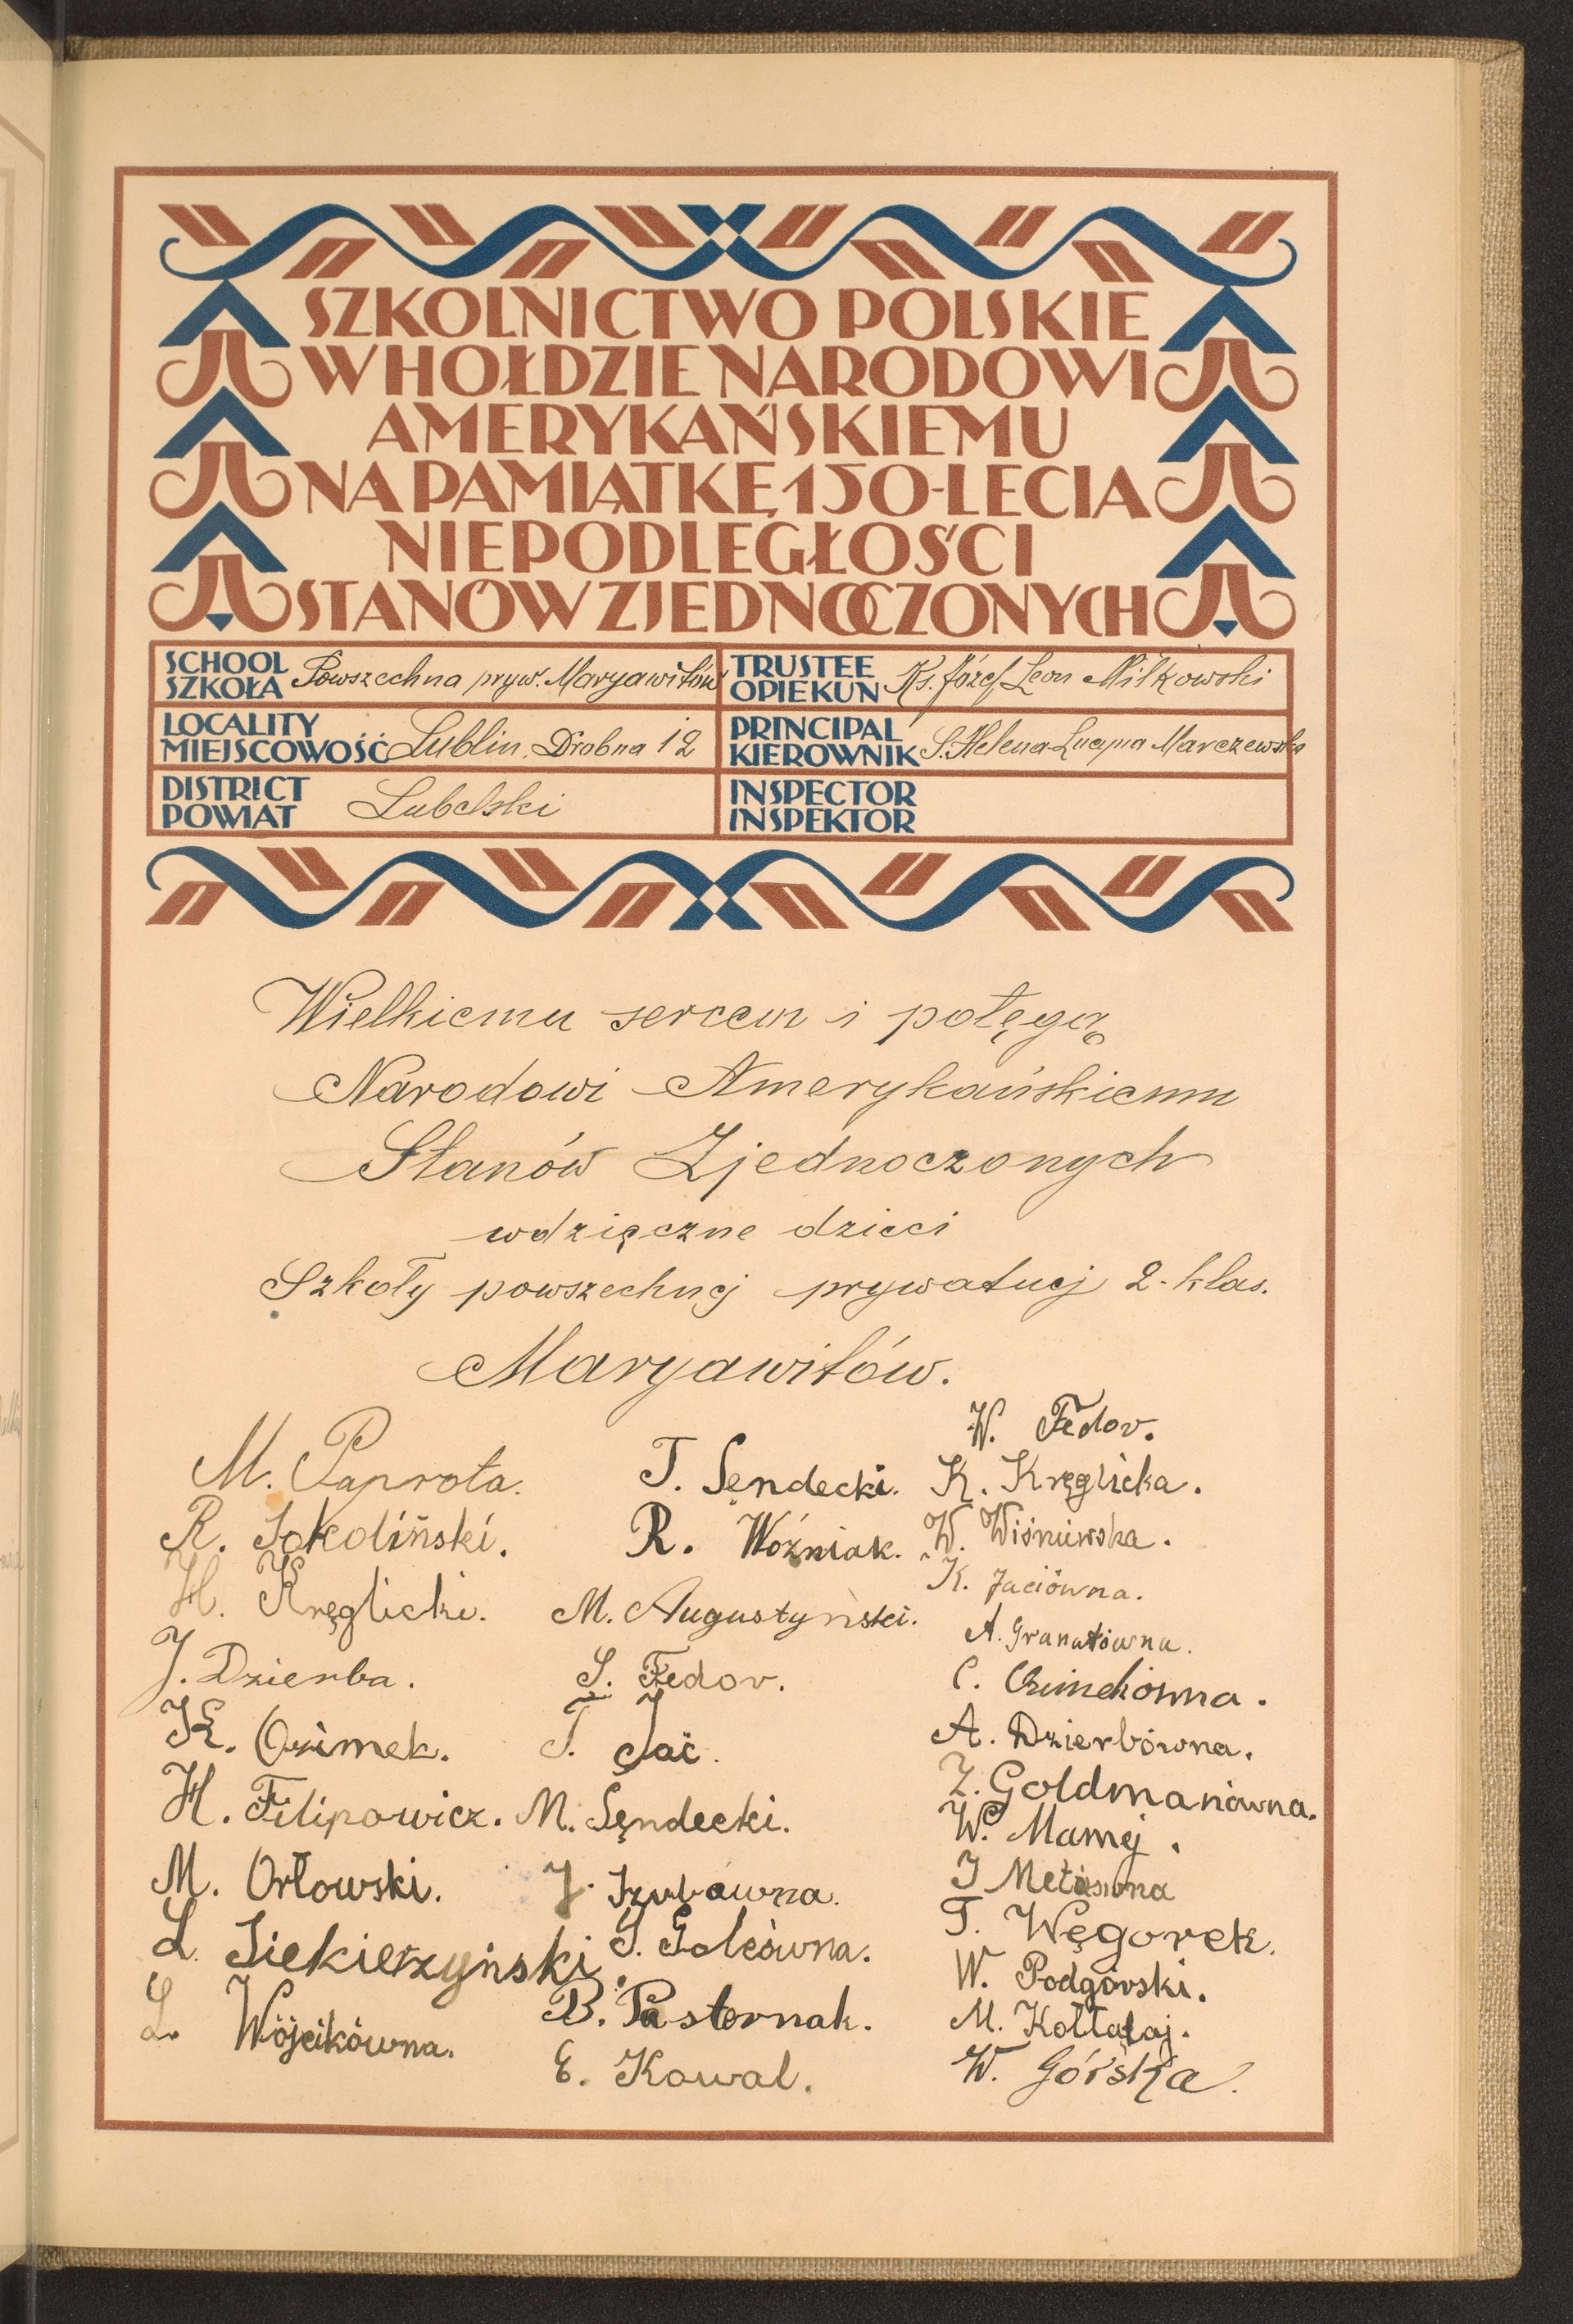 SZKOLNICTWO POLSKIE
W HOŁDZIE NARODOWI
AMERYKAŃSKIEMU
NA PAMIĄTKĘ 150-LECIA
NIEPODLEGŁOŚCI
STANÓW ZJEDNOCZONYCH
SCHOOL
SZKOŁA Powszechna pryw. Maryawitów
TRUSTEE
OPIEKUN Ks. Józef Leon Miłkowski
LOCALITY
MIEJSCOWOŚĆ Lublin. Drobna 12
PRINCIPAL
KIEROWNIK S. Helena Lucyna Marczewska
DISTRICT
POWIAT Lubelski
INSPECTOR
INSPEKTOR
Wielkiemu sercem i potęgą
Narodowi Amerykańskiemu
Stanów Zjednoczonych
wdzięczne dzieci
Szkoły powszechnej prywatnej 2-klas.
Maryawitów.
M. Paprota.
R. Sokoliński.
H. Kręglicki.
J. Dzierba.
K. Ozimek.
H. Filipowicz.
M. Orłowski.
L. Siekierzyński.
L. Wójcikówna.
T. Sęndecki.
R. Woźniak.
M. Augustyński.
S. Fedor.
T. Jać.
M. Sęndecki.
J. Szubówna.
G. Goleówna.
B. Pasternak.
E. Kowal.
W. Fedor.
K. Kręglicka.
W. Wiśniewska.
K. Jaciówna.
A. Granatówna.
C. Ozimkówna.
A. Dzierbówna.
Z. Goldmanówna.
W. Mamej.
J
T. Węgorek.
W. Podgórski.
M. Kołłątaj.
W. Górska.